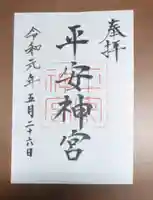 奉拝
平安神宮
令和元年五月二十六日